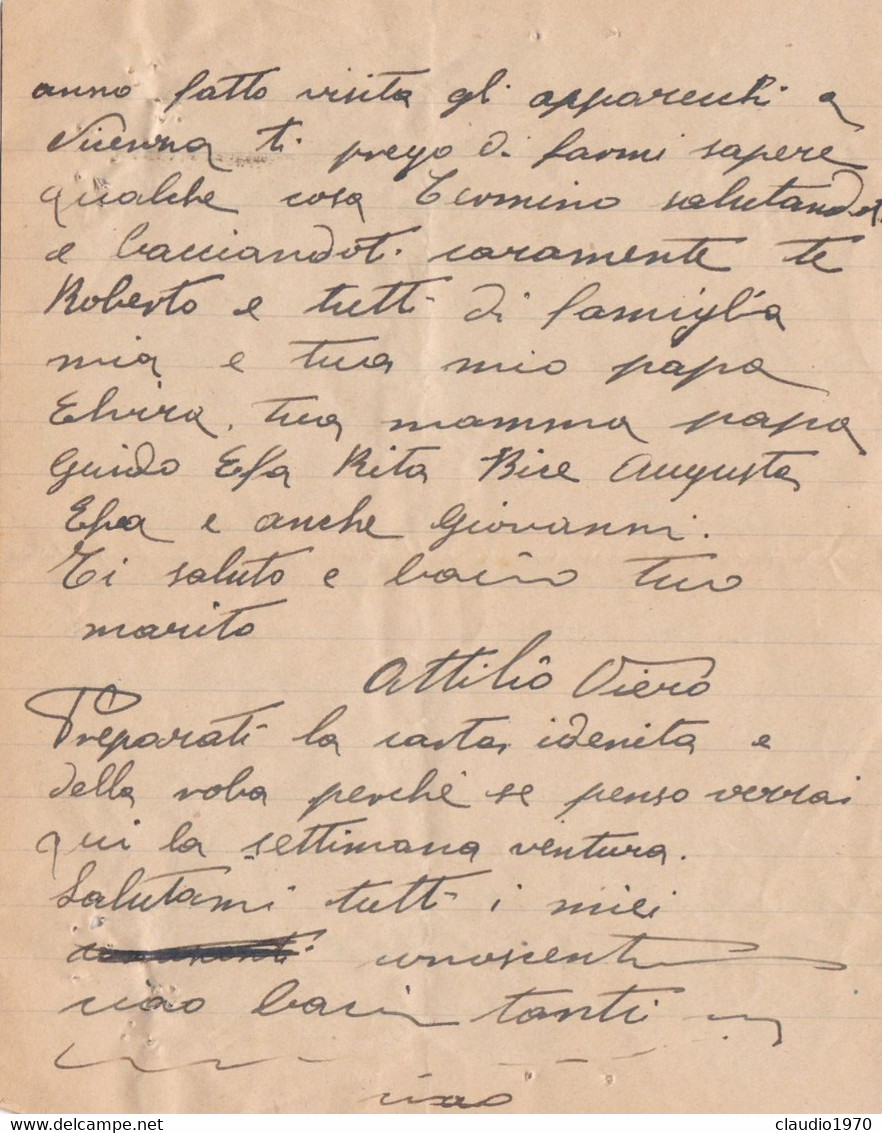 anno fatto visita gli apparechi a
Vicenza ti prego di farmi sapere
qualche cosa Termino salutandoti
e bacciandoti caramente te
Roberto e tutti di famiglia
mia e tua mio papa
Elvira, tua mamma papa
Guido Efa Rita Bice Augusta
Efea e anche Giovanni.
Ti saluto e bacio tuo
marito
Attilio Viero
Preparati la carta idenita e
della roba perchè se penso verrai
qui la settimana ventura.
Salutami tutti i miei
conoscenti
ciao baci tanti
ciao
claudio1970